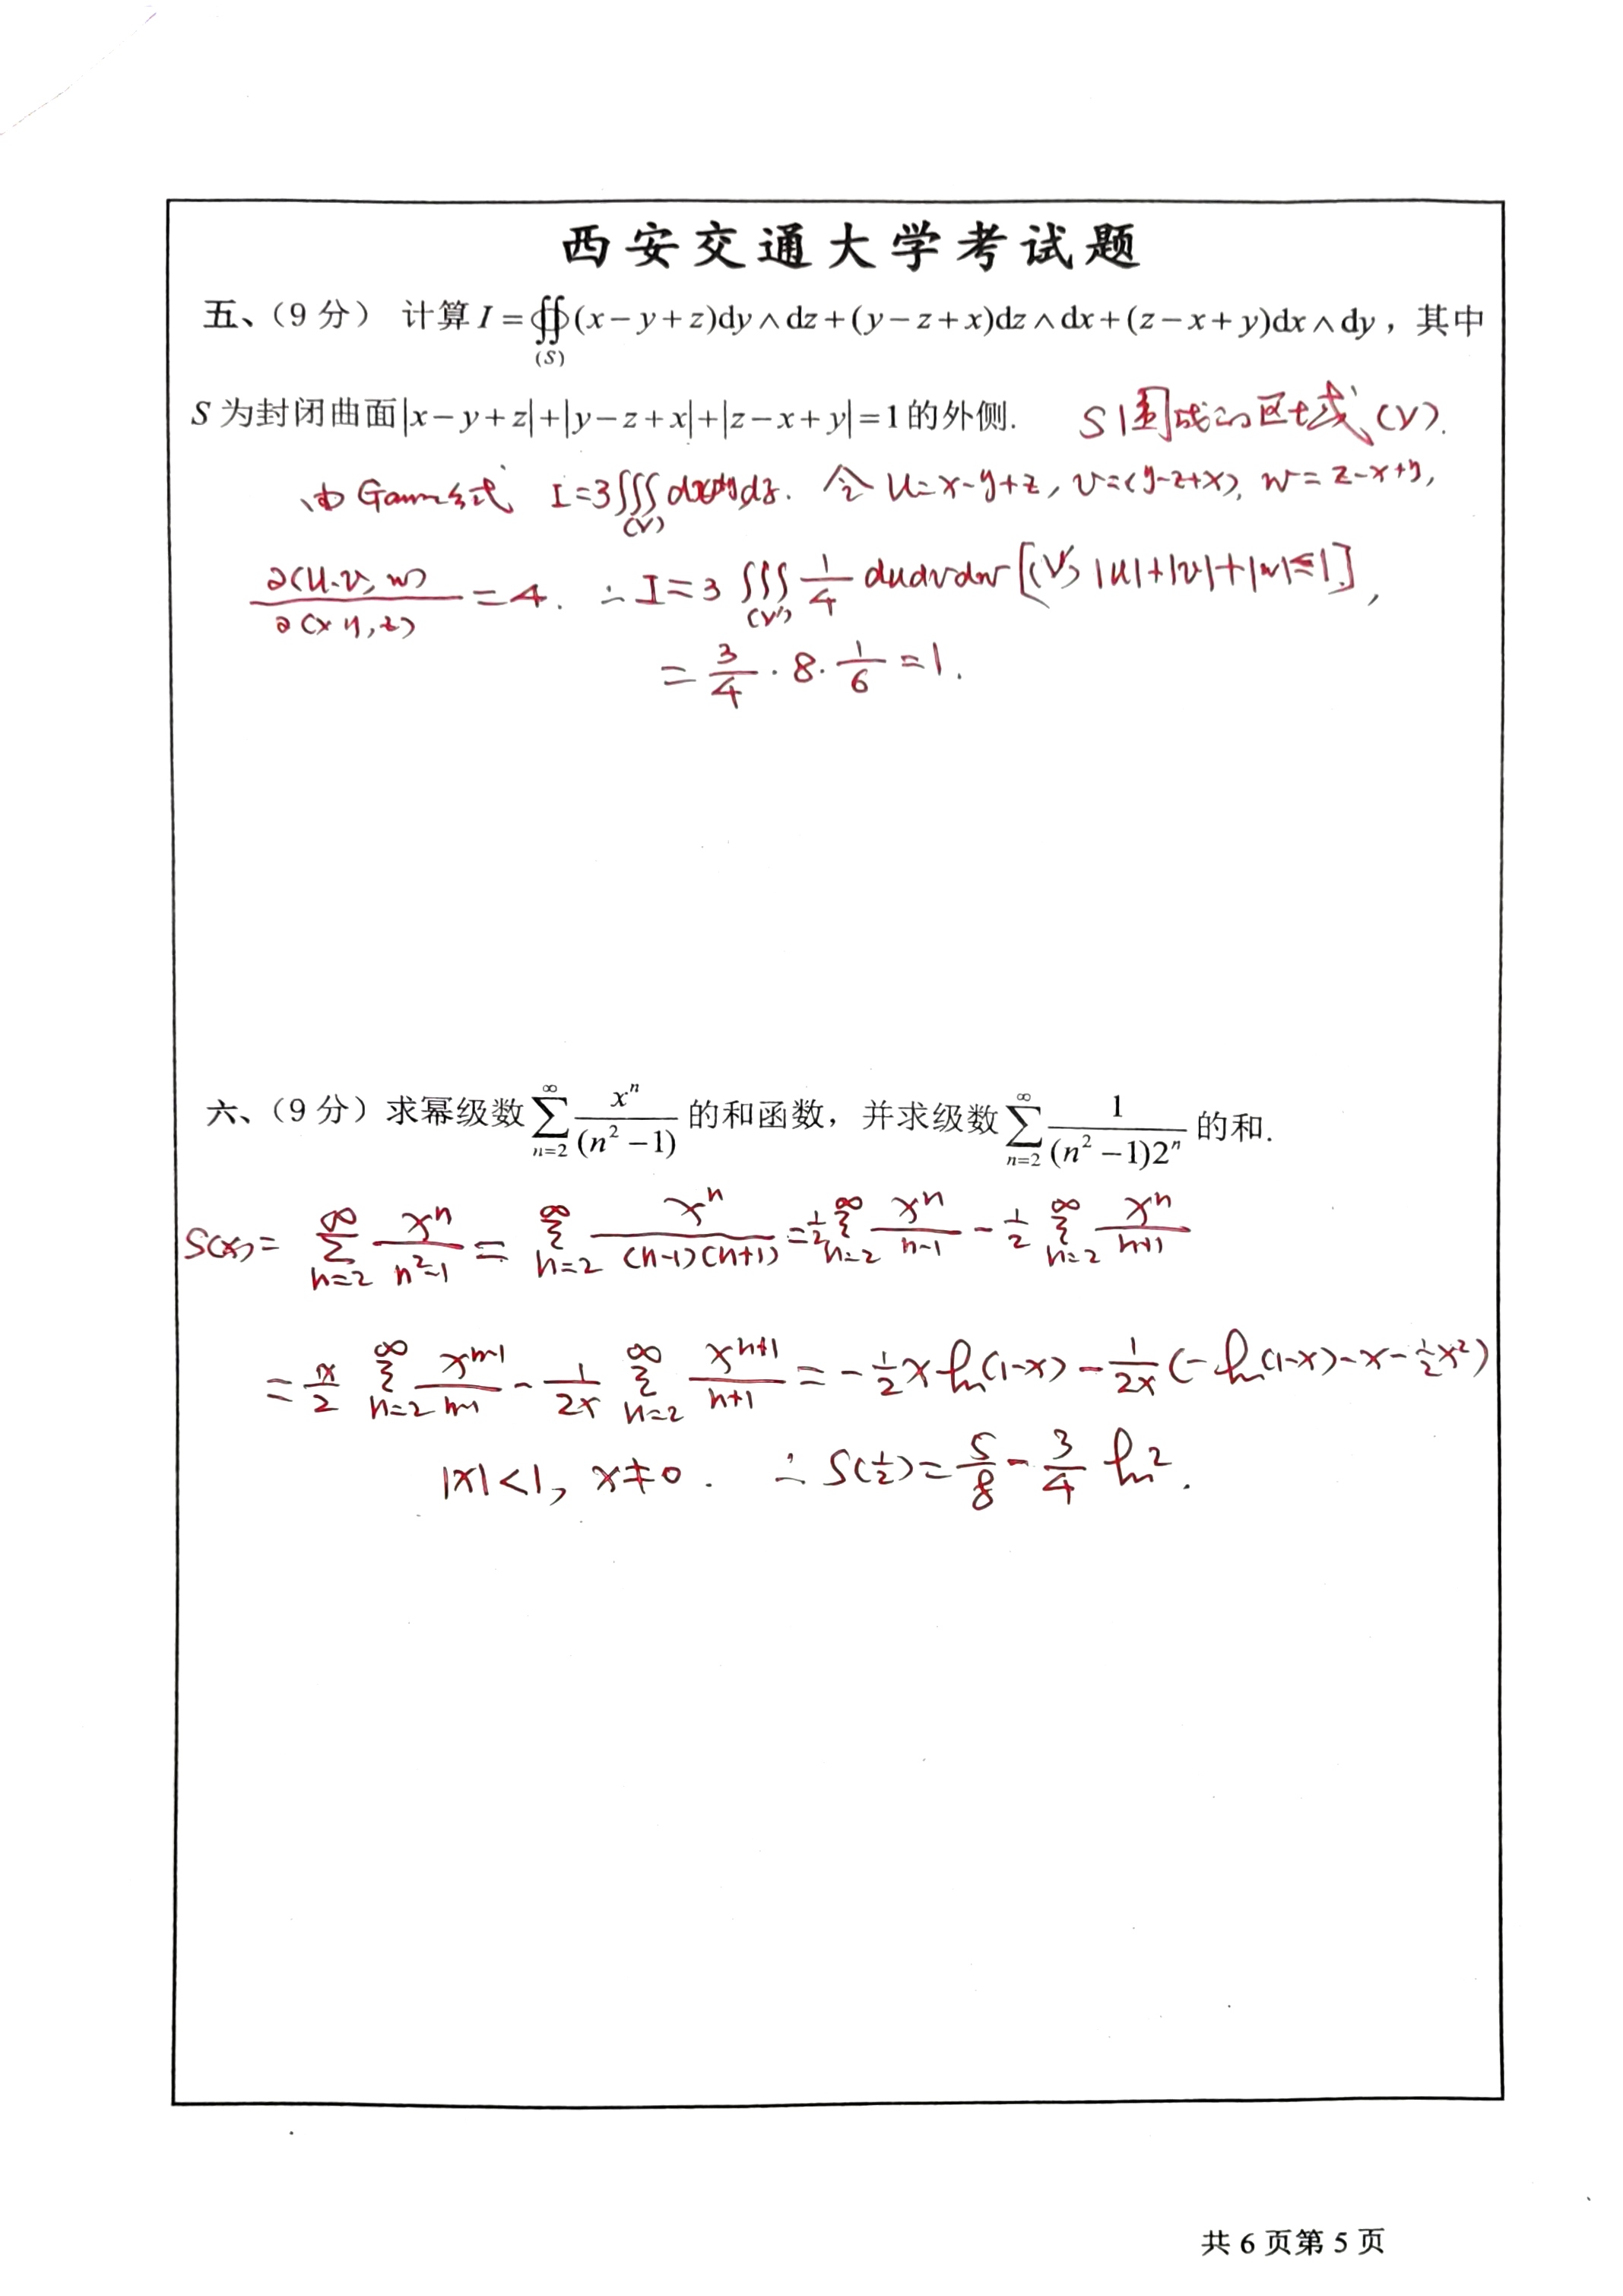 西安交通大学考试题
五、（9 分） 计算 I = ∯(S) (x−y+z)dy∧dz+(y−z+x)dz∧dx+(z−x+y)dx∧dy，其中
S 为封闭曲面|x−y+z|+|y−z+x|+|z−x+y|=1的外侧. S围成的区域(V).
由Gauss公式 I=3∭(V) dxdydz. 令 u=x-y+z, v=(y-z+x), w=z-x+y,
∂(u,v,w)/∂(x,y,z) = 4. ∴ I=3 ∭(V') 1/4 dudvdw [(V') |u|+|v|+|w|≤1],
= 3/4 · 8 · 1/6 = 1.
六、（9 分）求幂级数 ∑_{n=2}^{∞} x^n/(n²−1) 的和函数，并求级数 ∑_{n=2}^{∞} 1/((n²−1)2^n) 的和.
S(x) = ∑_{n=2}^{∞} x^n/(n²-1) = ∑_{n=2}^{∞} x^n/((n-1)(n+1)) = 1/2 ∑_{n=2}^{∞} x^n/(n-1) - 1/2 ∑_{n=2}^{∞} x^n/(n+1)
= x/2 ∑_{n=2}^{∞} x^{n-1}/(n-1) - 1/(2x) ∑_{n=2}^{∞} x^{n+1}/(n+1) = -1/2 x ln(1-x) - 1/(2x) (-ln(1-x)-x-1/2 x²)
|x|<1, x≠0. ∴ S(1/2) = 5/8 - 3/4 ln2.
共 6 页第 5 页